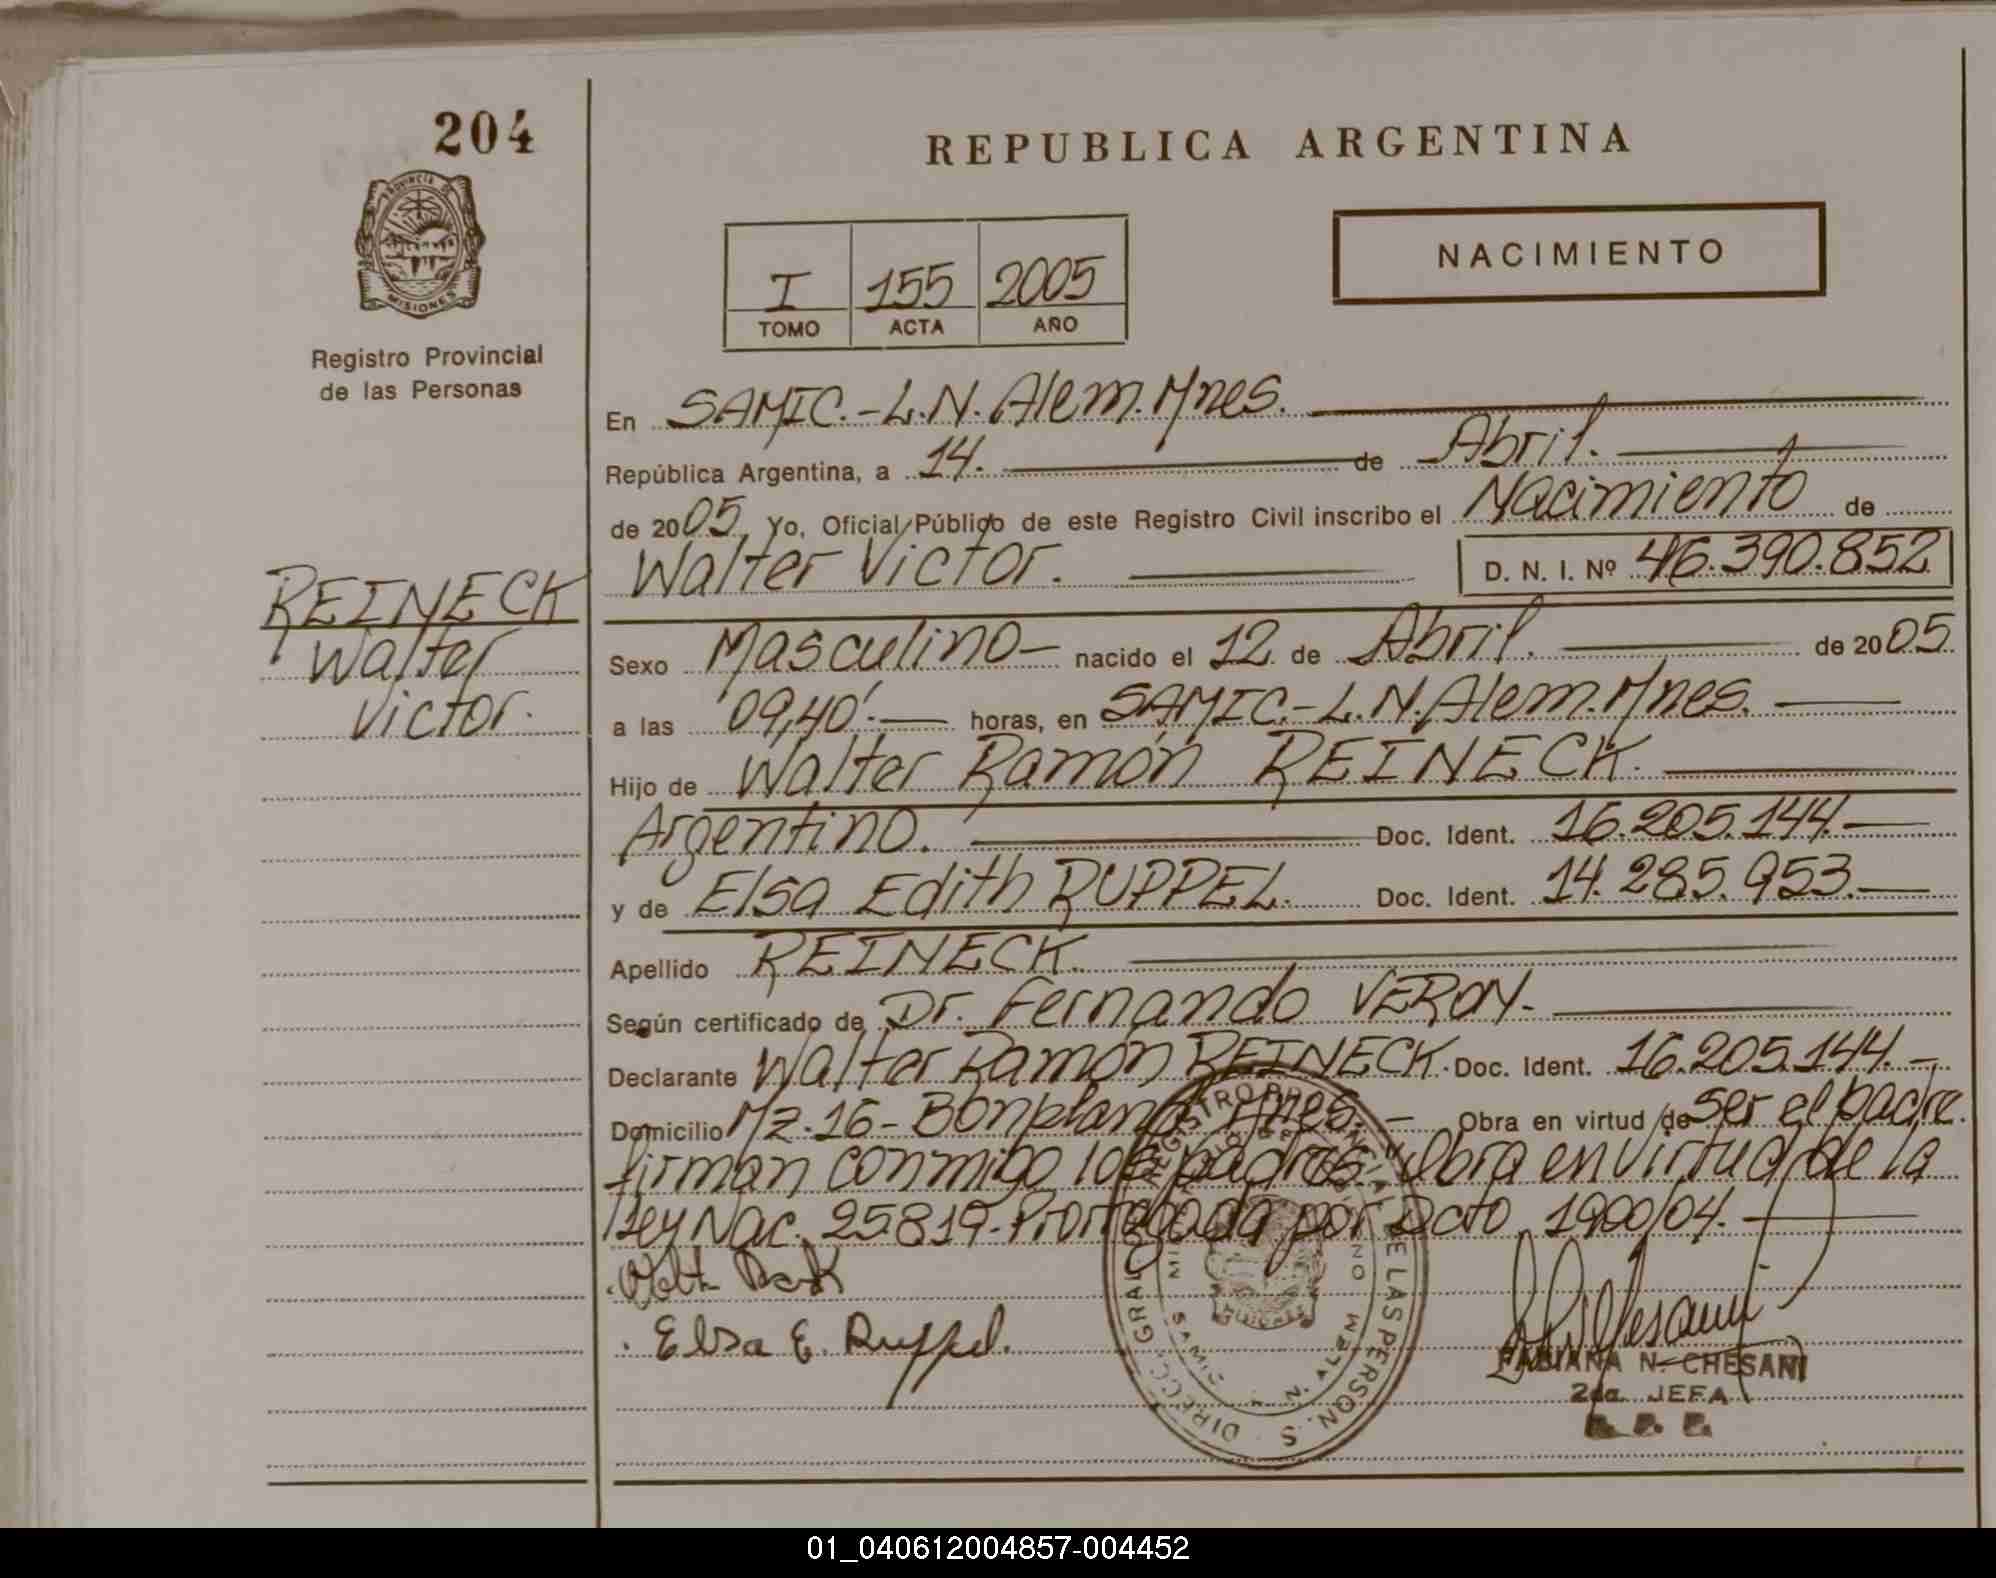 204
REPUBLICA ARGENTINA
PROVINCIA DE
MISIONES
Registro Provincial
de las Personas
I 155 2005
TOMO ACTA AÑO
NACIMIENTO
REINECK
Walter
Victor.
En SAMIC.-L.N.Alem.Mnes.
República Argentina, a 14. de Abril.
de 2005, Yo, Oficial Público de este Registro Civil inscribo el Nacimiento de
Walter Victor. D. N. I. Nº 46.390.852
Sexo Masculino- nacido el 12 de Abril. de 2005.
a las 09,40'.- horas, en SAMIC.-L.N.Alem.Mnes.
Hijo de Walter Ramón REINECK.
Argentino. Doc. Ident. 16.205.144.-
y de Elsa Edith RUPPEL. Doc. Ident. 14.285.953.-
Apellido REINECK.
Según certificado de Dr. Fernando VERON.-
Declarante Walter Ramón REINECK. Doc. Ident. 16.205.144.-
Domicilio Mz.16-Bonpland Mnes.- Obra en virtud de ser el padre.
firman conmigo los padres. Obra en virtud de la
Ley Nac. 25819-Prorrogada por Dcto 1900/04.-
Elsa E. Ruppel.
FABIANA N. CHESANI
2da. JEFA
01_040612004857-004452